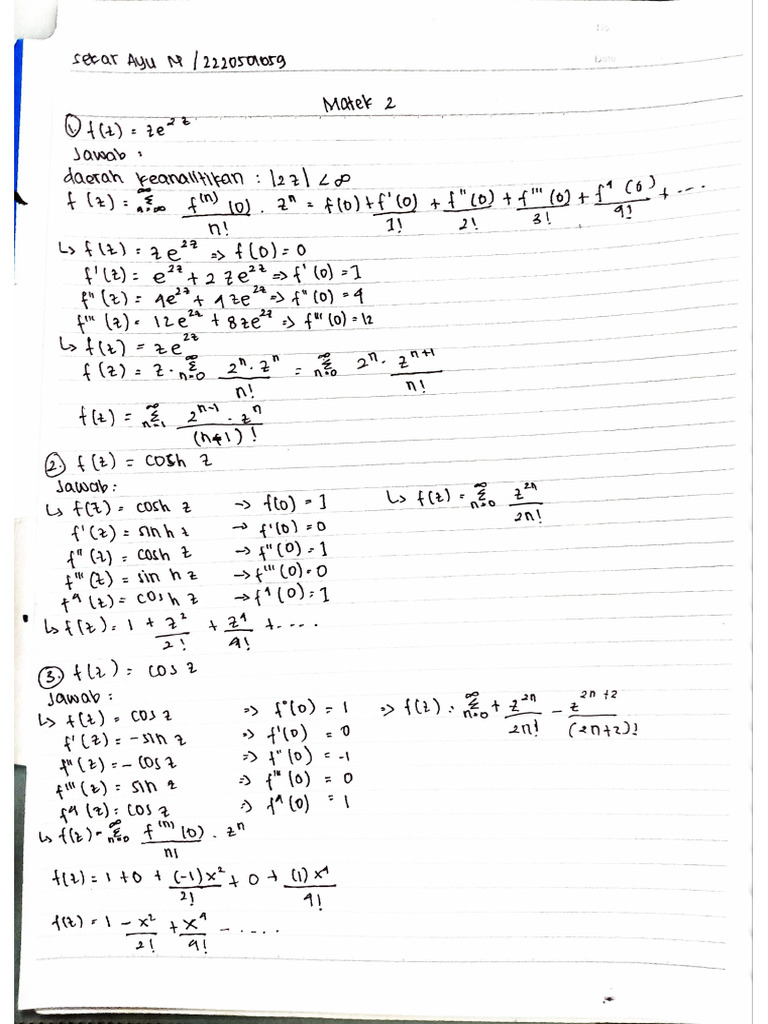 Sekar Ayu M / 2220501059
Matek 2
1. f(z) = ze^{2z}
Jawab :
daerah keanalitikan : |2z| < ∞
f(z) = Σ_{n=0}^{∞} f^{(n)}(0)/n! . z^n = f(0) + f'(0)/1! + f''(0)/2! + f'''(0)/3! + f^4(0)/4! + ...
↳ f(z) = ze^{2z} => f(0) = 0
f'(z) = e^{2z} + 2ze^{2z} => f'(0) = 1
f''(z) = 4e^{2z} + 4ze^{2z} => f''(0) = 4
f'''(z) = 12e^{2z} + 8ze^{2z} => f'''(0) = 12
↳ f(z) = ze^{2z}
f(z) = z . Σ_{n=0}^{∞} 2^n . z^n / n! = Σ_{n=0}^{∞} 2^n . z^{n+1} / n!
f(z) = Σ_{n=1}^{∞} 2^{n-1} . z^n / (n-1)!
2. f(z) = cosh z
Jawab :
↳ f(z) = cosh z → f(0) = 1 ↳ f(z) = Σ_{n=0}^{∞} z^{2n} / 2n!
f'(z) = sinh z → f'(0) = 0
f''(z) = cosh z → f''(0) = 1
f'''(z) = sinh z → f'''(0) = 0
f^4(z) = cosh z → f^4(0) = 1
↳ f(z) = 1 + z^2/2! + z^4/4! + ....
3. f(z) = cos z
Jawab :
↳ f(z) = cos z => f°(0) = 1 => f(z) = Σ_{n=0}^{∞} + z^{2n}/2n! - z^{2n+2}/(2n+2)!
f'(z) = -sin z => f'(0) = 0
f''(z) = -cos z => f''(0) = -1
f'''(z) = sin z => f'''(0) = 0
f^4(z) = cos z => f^4(0) = 1
↳ f(z) = Σ_{n=0}^{∞} f^{(n)}(0)/n! . z^n
f(z) = 1 + 0 + (-1)x^2/2! + 0 + (1)x^4/4!
f(z) = 1 - x^2/2! + x^4/4! - .....